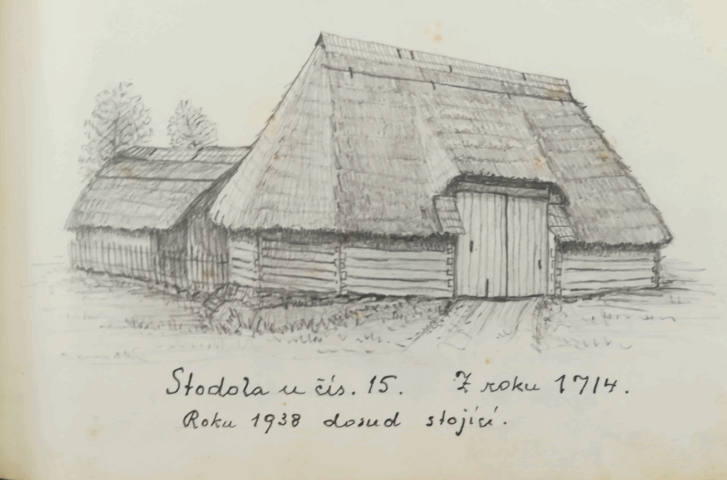 Stodola u čís. 15. Z roku 1714.
Roku 1938 dosud stojící.